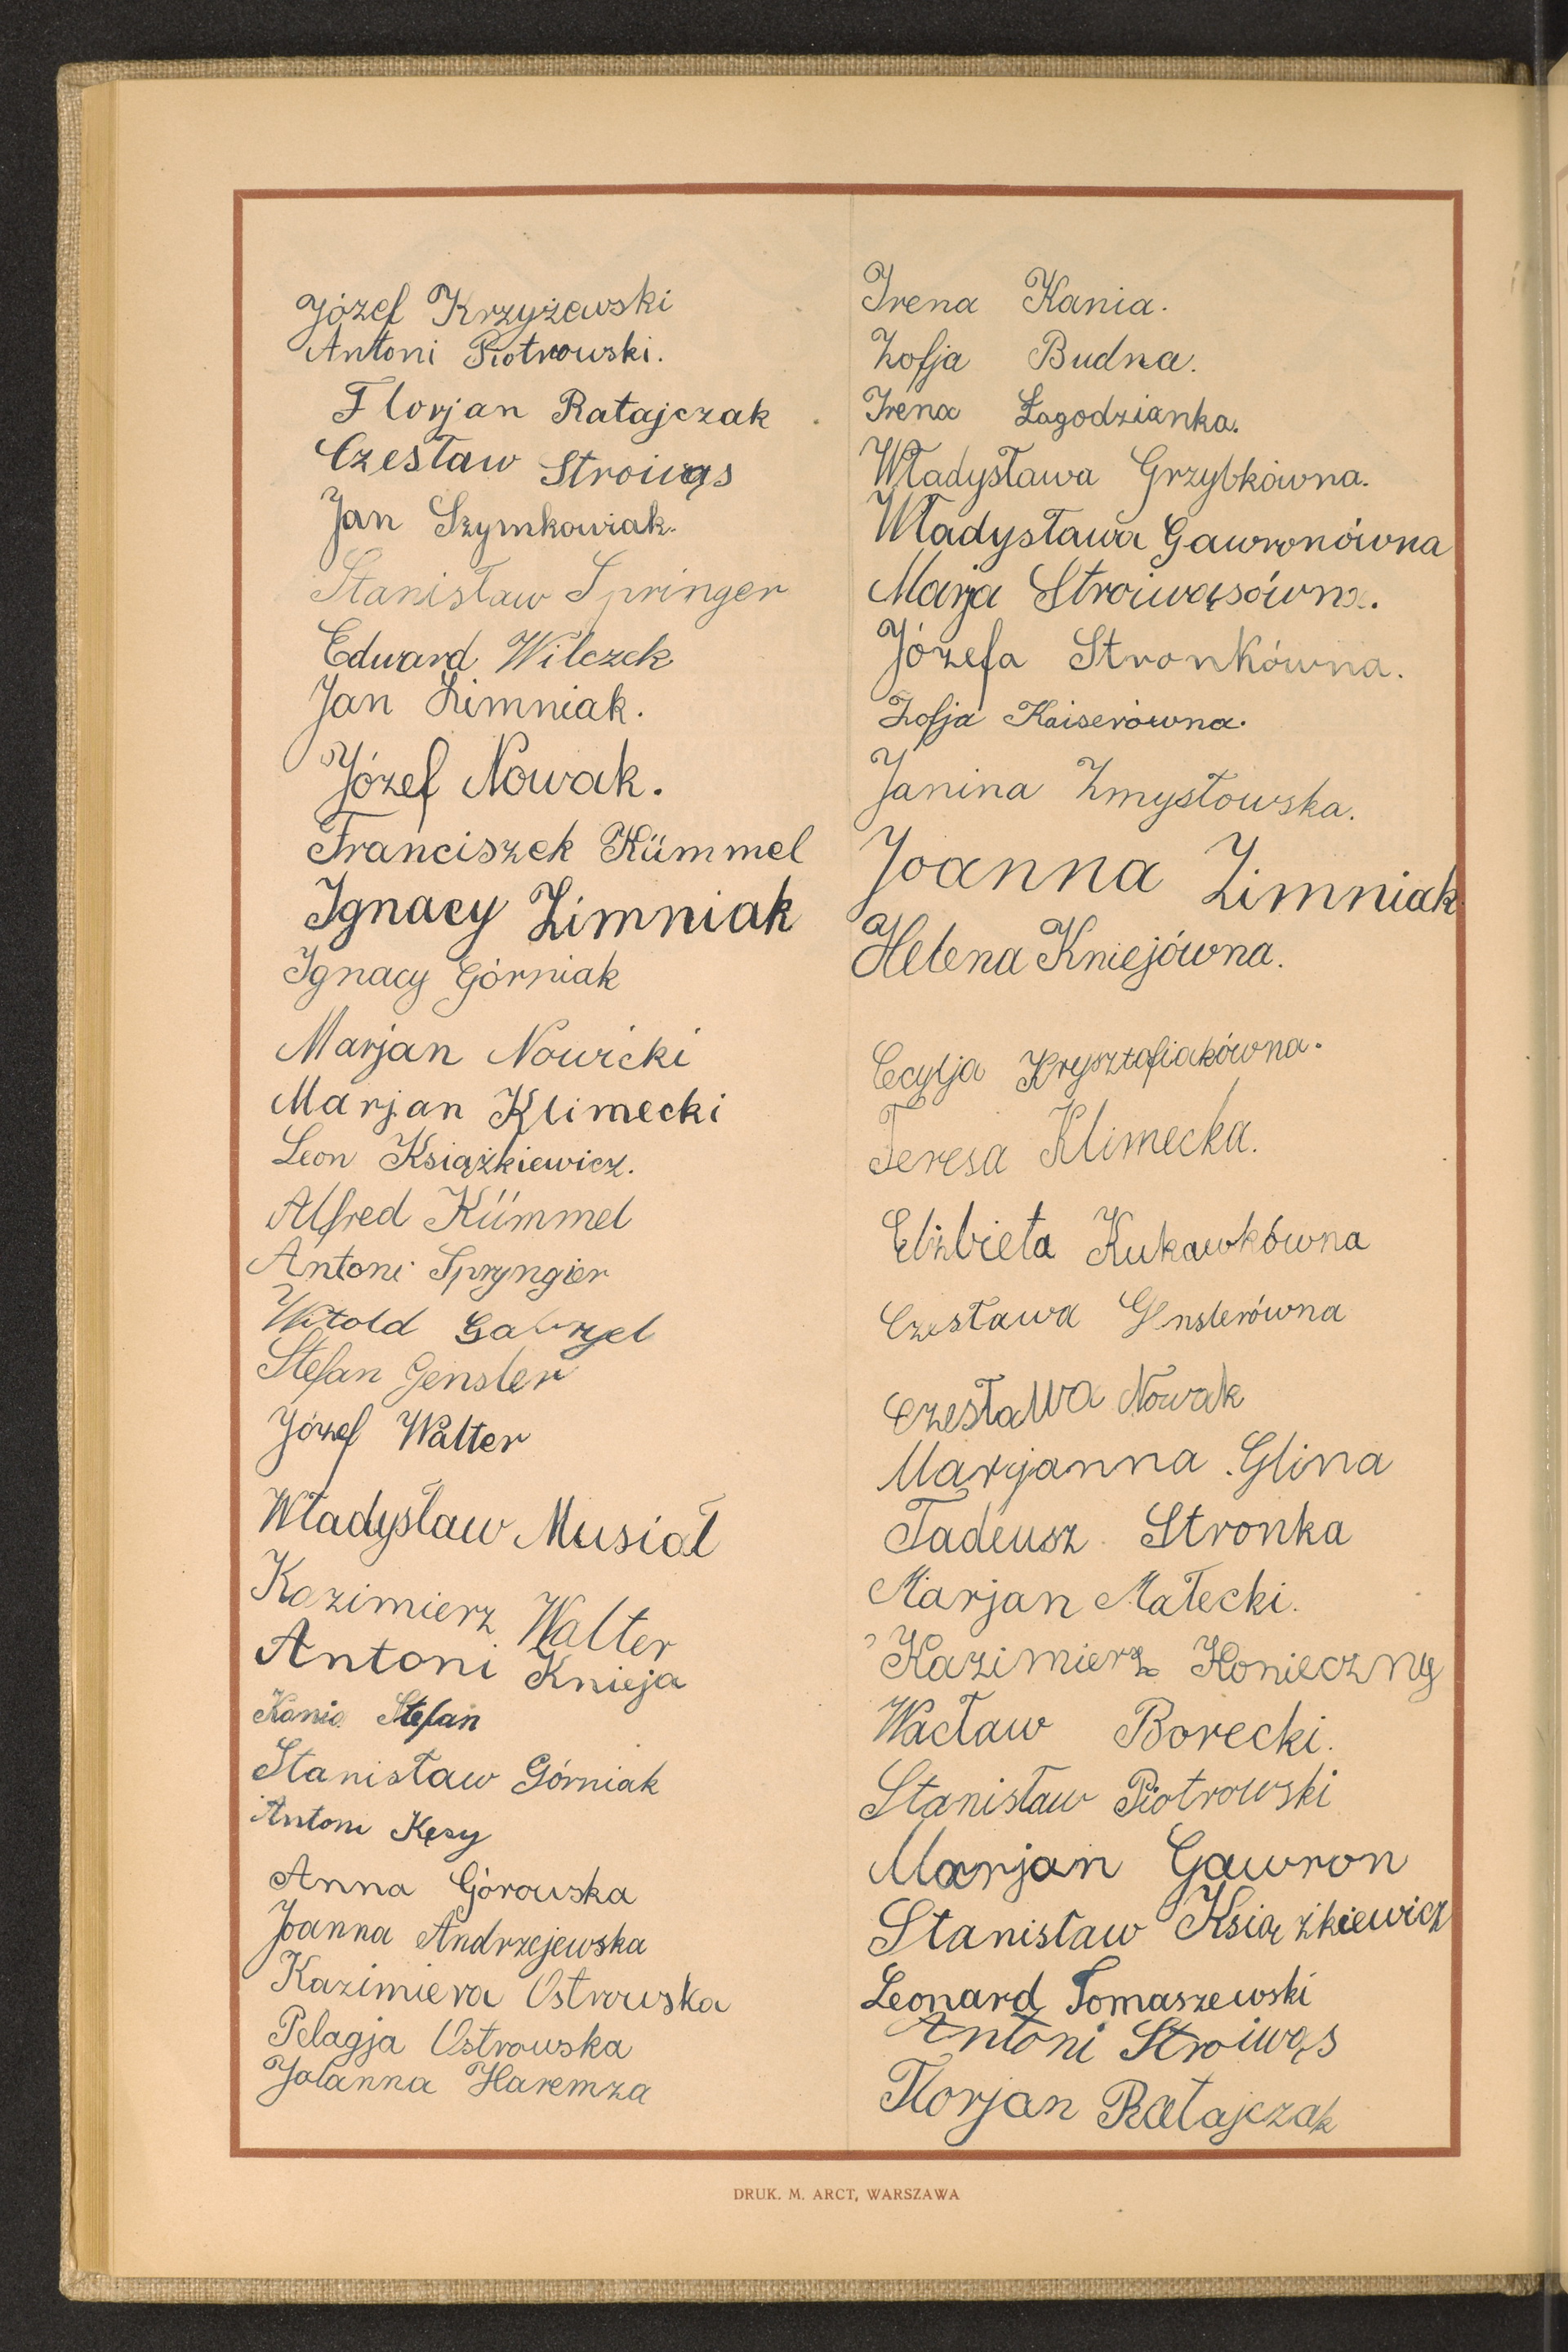 Józef Krzyżewski
Antoni Piotrowski.
Florjan Ratajczak
Czesław Stroiwąs
Jan Szymkowiak.
Stanisław Springer
Edward Wilczek
Jan Zimniak.
Józef Nowak.
Franciszek Kümmel
Ignacy Zimniak
Ignacy Górniak
Marjan Nowicki
Marjan Klimecki
Leon Książkiewicz.
Alfred Kümmel
Antoni Spryngier
Witold Gabryel
Stefan Gensler
Józef Walter
Władysław Musiał
Kazimierz Walter
Antoni Knieja
Kania Stefan
Stanisław Górniak
Antoni Kęsy
Anna Górowska
Joanna Andrzejewska
Kazimiera Ostrowska
Pelagja Ostrowska
Jolanna Haremza
Irena Kania.
Zofja Budna.
Irena Łagodzianka.
Władysława Grzybkówna.
Władysława Gawronówna
Marja Stroiwąsówna.
Józefa Stronkówna.
Zofja Kaiserówna.
Janina Zmysłowska.
Joanna Zimniak
Helena Kniejówna.
Cecylja Krysztofiakówna.
Teresa Klimecka.
Elżbieta Kukawkówna
Czesława Genslerówna
Czesława Nowak
Maryanna Glina
Tadeusz Stronka
Marjan Małecki.
Kazimierz Konieczny
Wacław Borecki.
Stanisław Piotrowski
Marjan Gawron
Stanisław Książkiewicz
Leonard Tomaszewski
Antoni Stroiwąs
Florjan Ratajczak
DRUK. M. ARCT, WARSZAWA